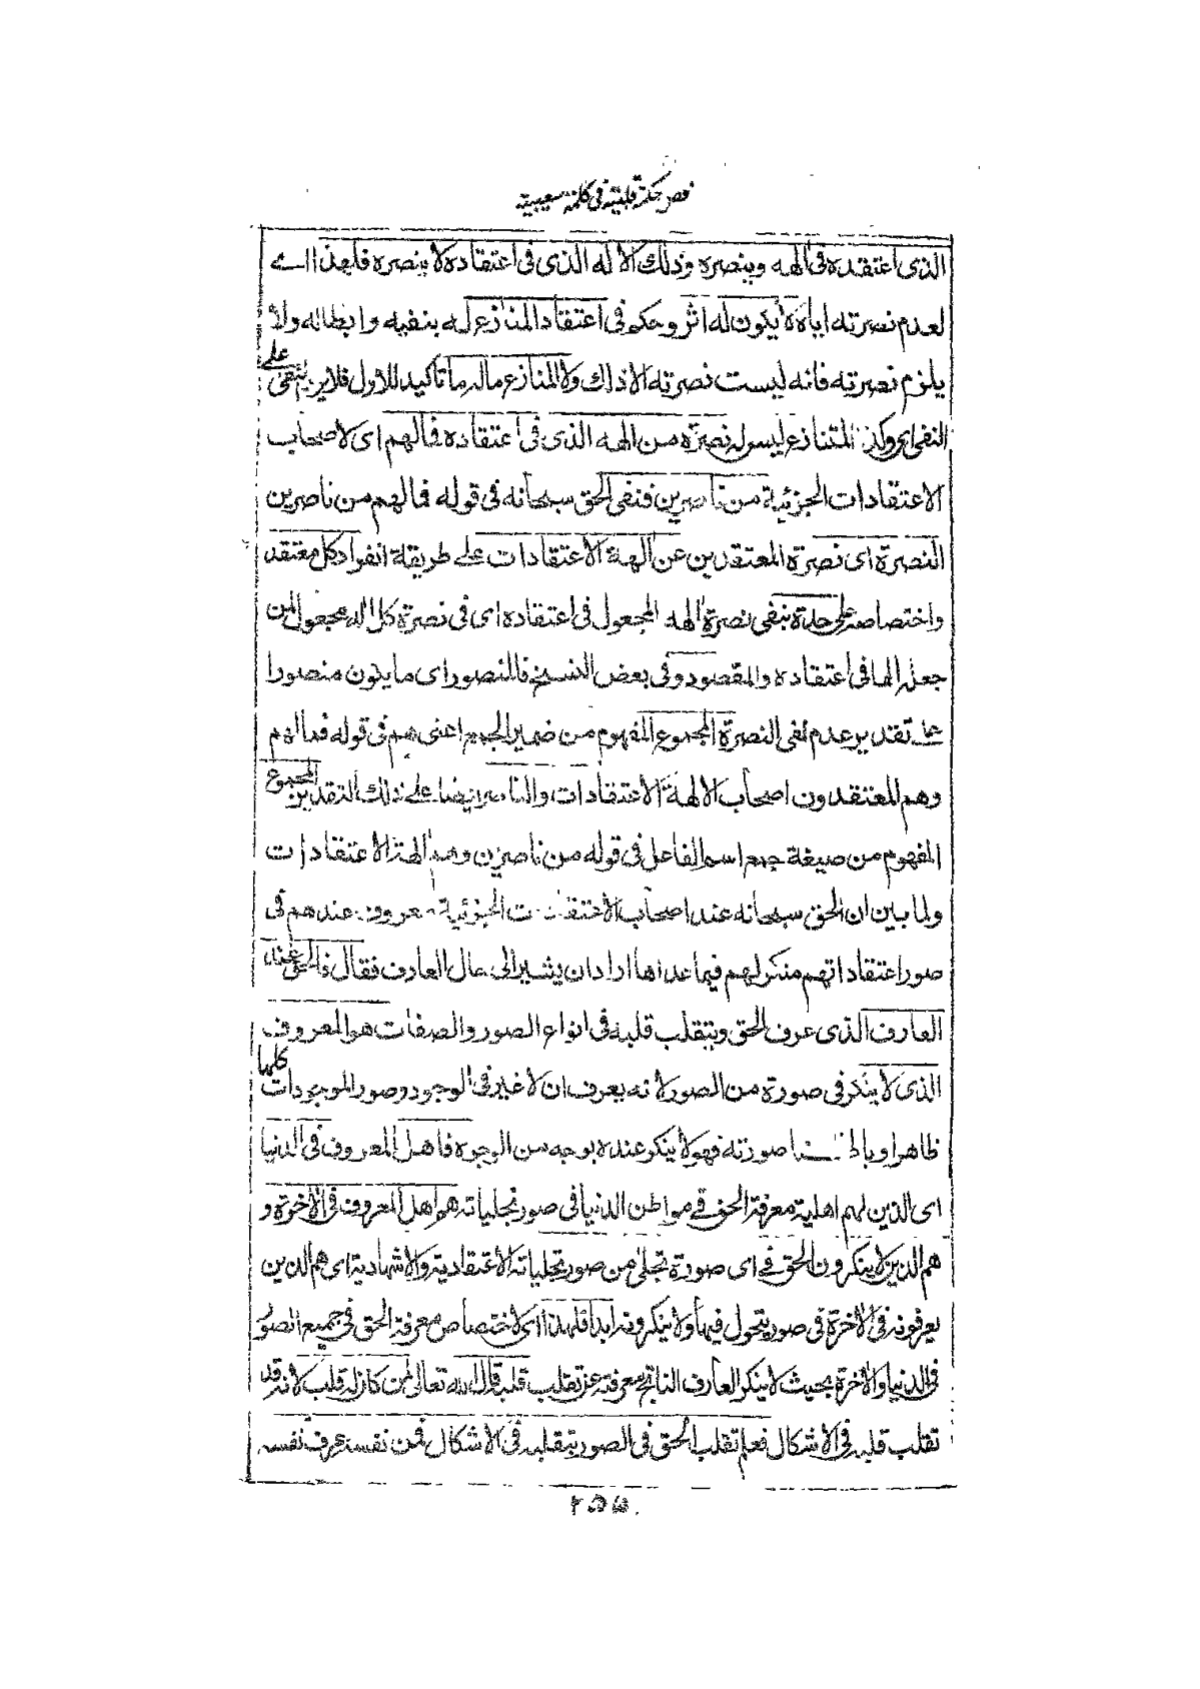 فص حكمة قلبية في كلمة شعيبية
الذى اعتقده فى الهه وينصره وذلك الاله الذى فى اعتقاده لا ينصره فلهذا اى
لعدم نصرته اياه لا يكون له اثر وحكم فى اعتقاد المنازع له بنفيه وابطاله ولا
يلزم نصرته فانه ليست نصرته الا ذلك ولا المنازع ماله ما تأكيد للاول فلا يرد النفى على
النفى اى وكذا المتنازع ليس له نصرة من الهه الذى فى اعتقاده فمالهم اى لاصحاب
الاعتقادات الجزئية من ناصرين فنفى الحق سبحانه فى قوله فمالهم من ناصرين
النصرة اى نصرة المعتقدين عن آلهة الاعتقادات على طريقة انفراد كل معتقد
واختصاصه على حدة بنفى نصرة الهه المجعول فى اعتقاده اى فى نصرة كل اله مجعول لمن
جعله الها فى اعتقاده والمقصود وفى بعض النسخ فالمنصور اى ما يكون منصورا
على تقدير عدم نفى النصرة المجموع المفهوم من ضمير الجمع اعنى هم فى قوله فمالهم
وهم المعتقدون اصحاب الالهة الاعتقادات والناصر ايضا على ذلك التقدير المجموع
المفهوم من صيغة جمع اسم الفاعل فى قوله من ناصرين وهو آلهة الاعتقادات
ولما بين ان الحق سبحانه عند اصحاب الاعتقادات الجزئية معروف عندهم فى
صور اعتقاداتهم منكر لهم فيما عداها اراد ان يشير الى حال العارف فقال فالحق عند
العارف الذى عرف الحق وبتقلب قلبه فى انواع الصور والصفات هو المعروف
الذى لا ينكر فى صورة من الصور لانه يعرف ان لا غير فى الوجود وصور الموجودات كلها
ظاهرا وباطنا صورته فهو لا ينكر عنده بوجه من الوجوه فاهل المعروف فى الدنيا
اى الذين لهم اهلية معرفة الحق فى مواطن الدنيا فى صور تجلياته هم اهل المعروف فى الآخرة و
هم الذين لا ينكرون الحق فى اى صورة تجلى من صور تجلياته الاعتقادية والاشهادية اى هم الذين
يعرفونه فى الآخرة فى صور يتحول فيها ولا ينكرونه ابدا فلهذا اى لاختصاص معرفة الحق فى جميع الصور
فى الدنيا والآخرة بحيث لا ينكر العارف الناتج معرفته عن تقلب قلبه قال الله تعالى لمن كان له قلب لانه قد
تقلب قلبه فى الاشكال فعلم تقلب الحق فى الصور بتقلبه فى الاشكال فمن نفسه عرف نفسه
٢٥٥